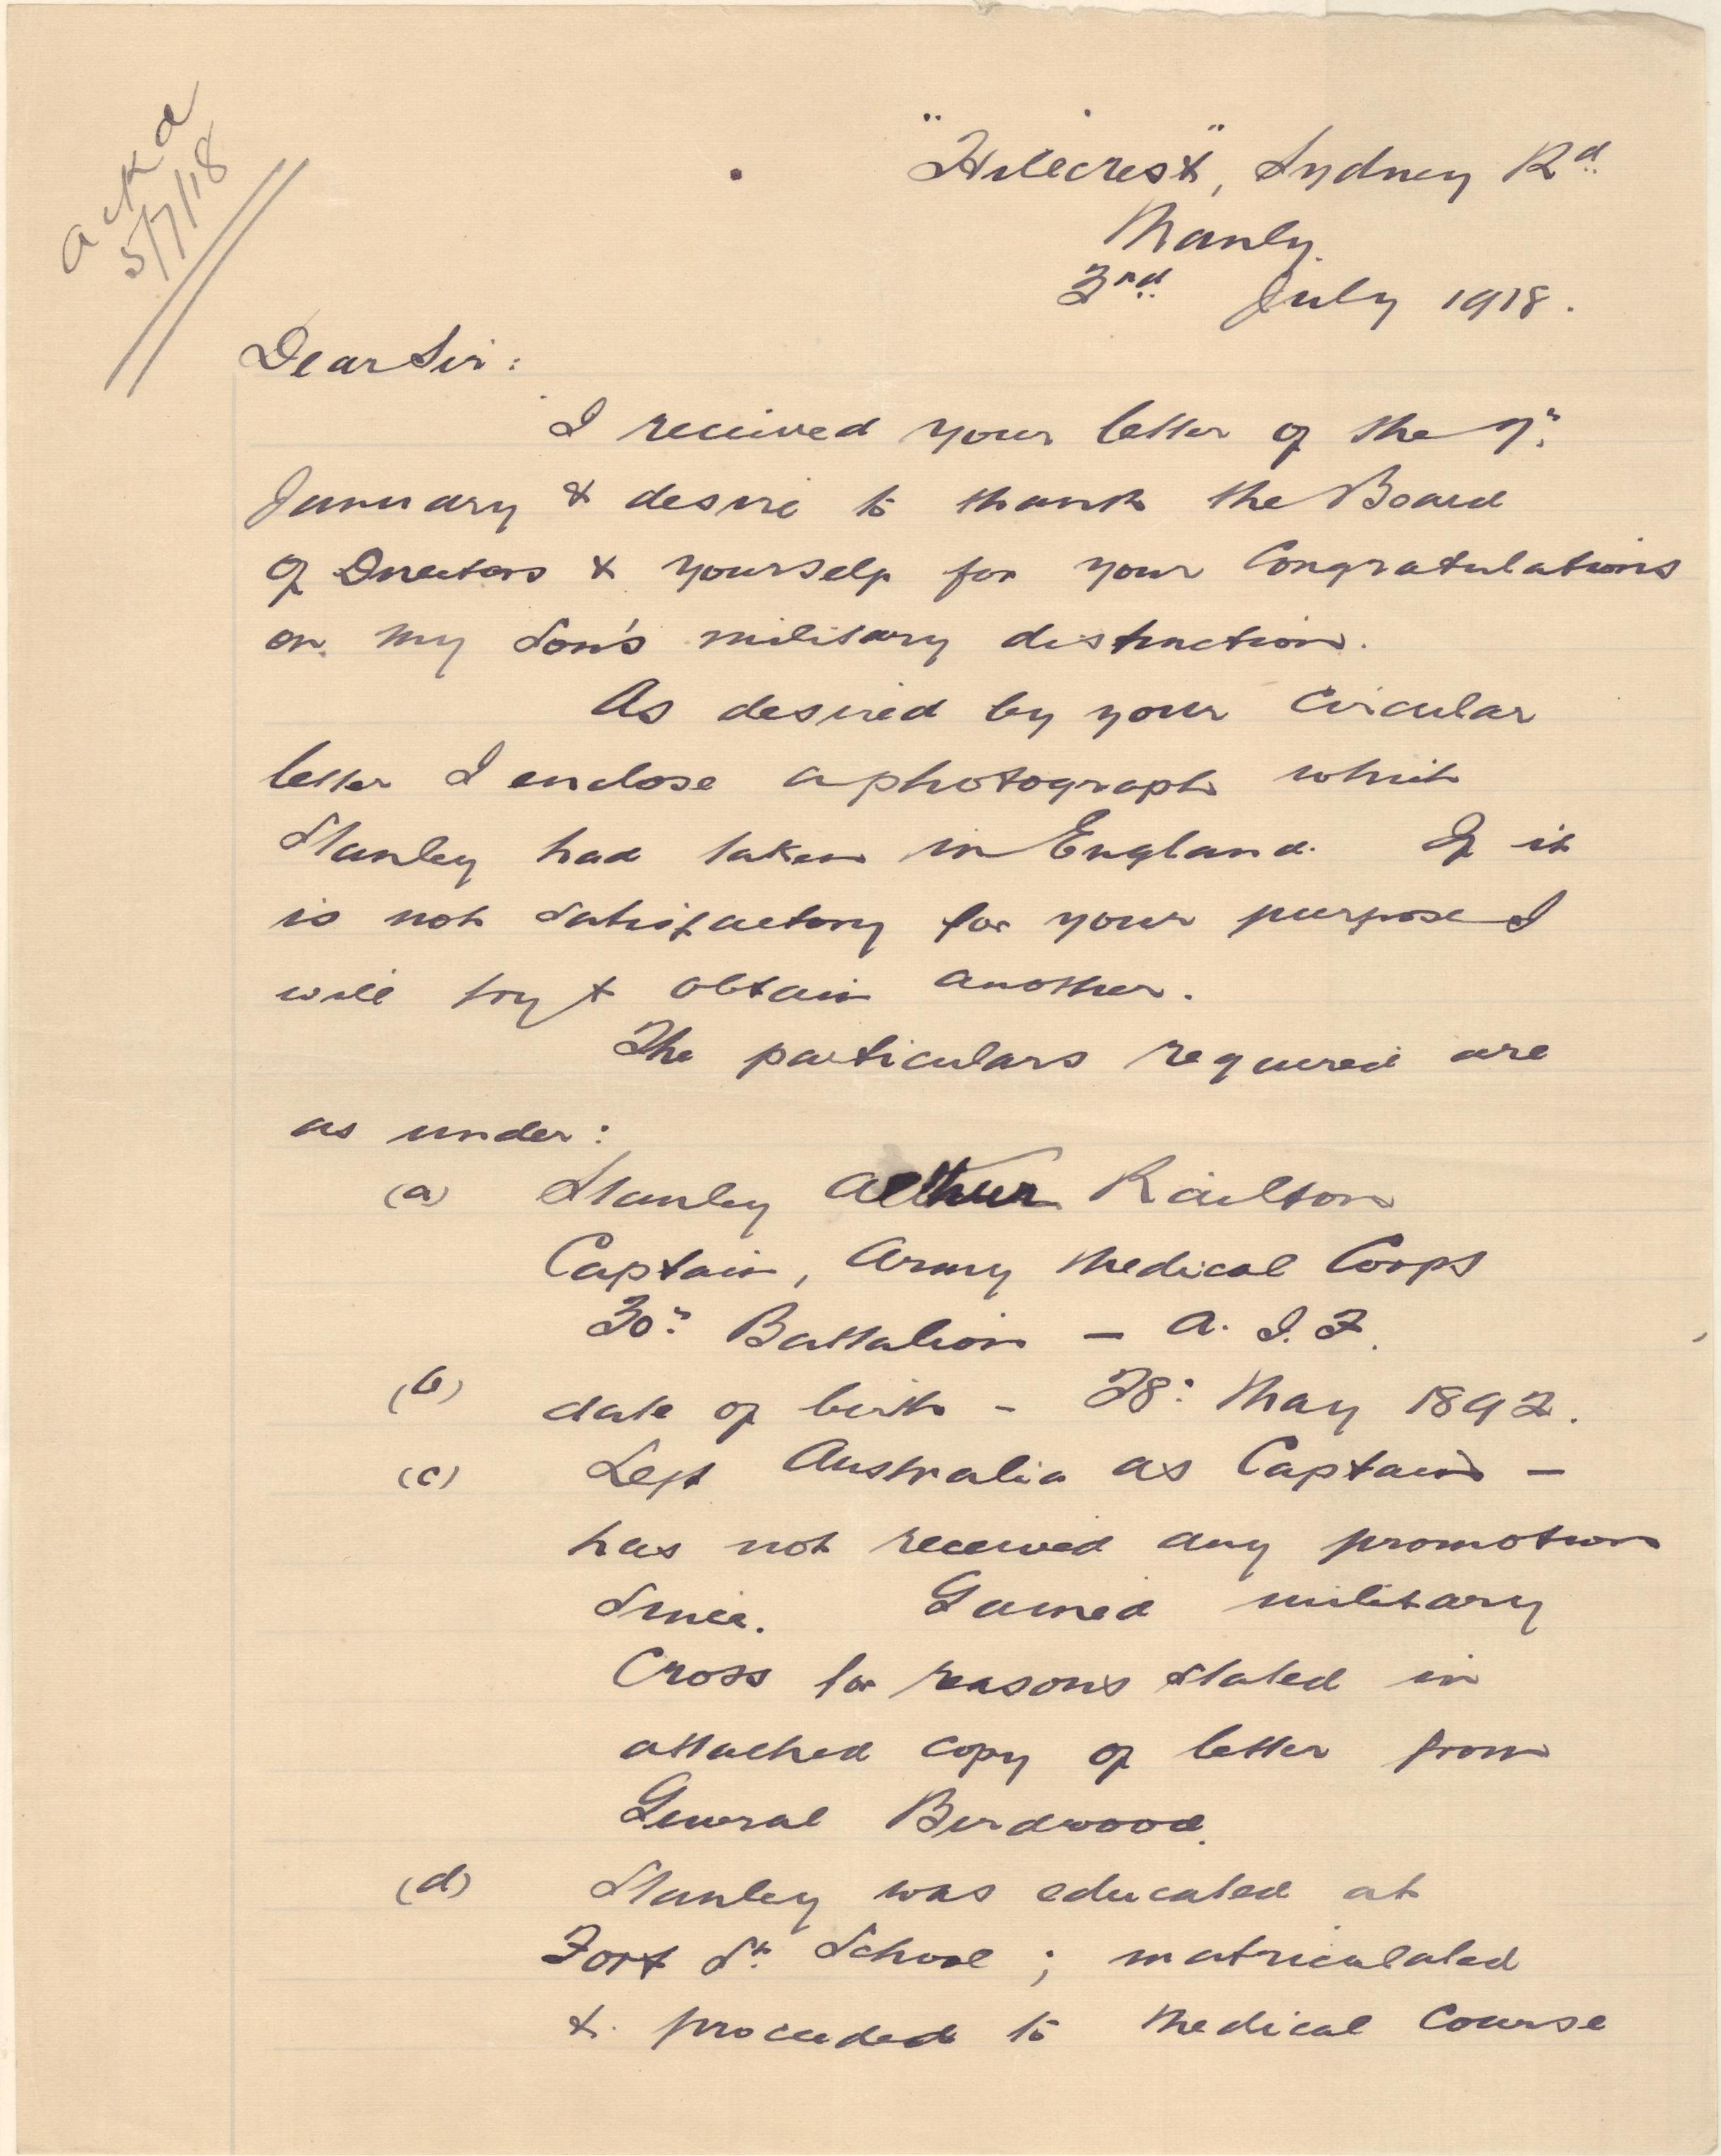 ackd
5/7/18
"Hillcrest", Sydney Rd.
Manly.
3rd. July 1918.
Dear Sir:
I received your letter of the 7".
January & desire to thank the Board
of Directors & yourself for your Congratulations
on my Son's military distinction.
As desired by your Circular
letter I enclose a photograph which
Stanley had taken in England. If it
is not Satisfactory for your purpose I
will try & obtain another.
The particulars required are
as under:
(a) Stanley Arthur Railton
Captain, Army Medical Corps
30". Battalion - A. I. F.
(b) date of birth - 28: May 1892.
(c) Left Australia as Captain -
has not received any promotion
Since. Gained military
Cross for reasons stated in
attached copy of letter from
General Birdwood.
(d) Stanley was educated at
Fort St. School; matriculated
& proceeded to Medical Course